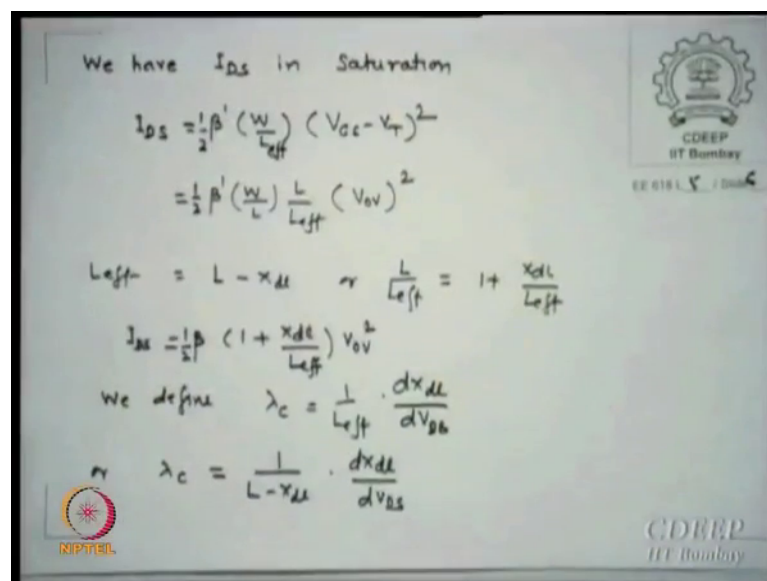 We have I_DS in Saturation
I_DS = 1/2 β' (W/L_eff) (V_GS - V_T)^2
= 1/2 β' (W/L) L/L_eff (V_OV)^2
L_eff = L - x_dl or L/L_eff = 1 + x_dl/L_eff
I_DS = 1/2 β (1 + x_dl/L_eff) V_OV^2
We define λ_c = 1/L_eff · dx_dl/dV_DS
or λ_c = 1/(L - x_dl) · dx_dl/dV_DS
CDEEP
IIT Bombay
EE 618 L
NPTEL
CDEEP
IIT Bombay